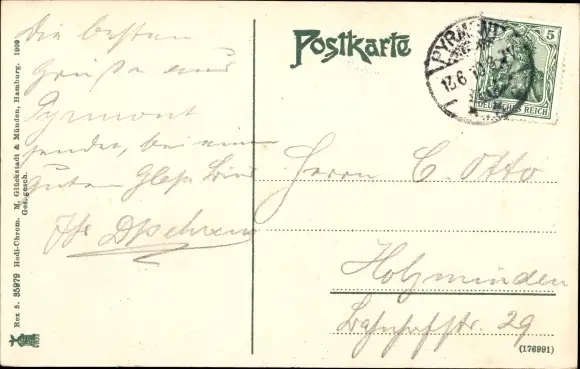 Die besten
Grüße aus
Pyrmont
sendet, bei einem
Guten Glase Bier
Ihr
Postkarte
PYRMONT
13.6
5
DEUTSCHES REICH
Herrn C. Otto
Holzminden
Bahnhofstr. 29
(176991)
Rex 5. 35979 Hedi-Chrom. M. Glückstadt & Münden, Hamburg. 1909
Ges. gesch.